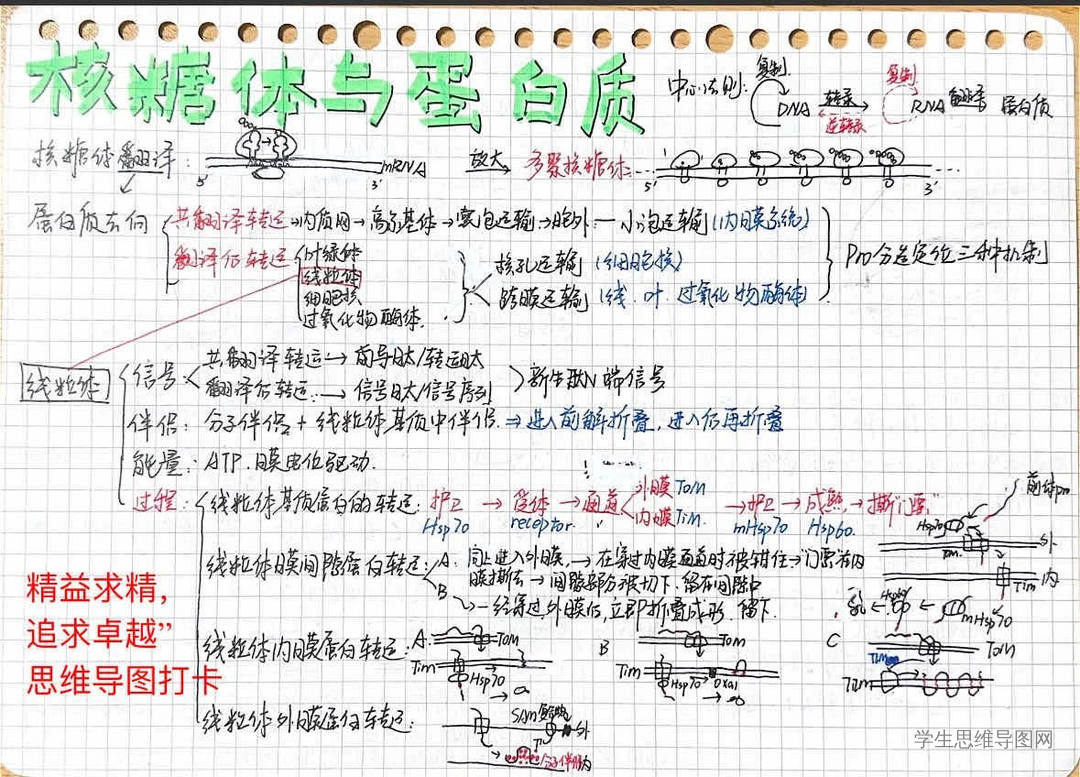 核糖体与蛋白质
中心法则: 复制 DNA 转录 逆转录 复制 RNA 翻译 蛋白质
核糖体翻译: 5' 3' mRNA 放大 多聚核糖体: 5' 3'
蛋白质去向
共翻译转运→内质网→高尔基体→囊泡运输→胞外 — 小泡运输(内膜系统)
翻译后转运
叶绿体
线粒体
细胞核
过氧化物酶体.
核孔运输 (细胞核)
跨膜运输 (线.叶.过氧化物酶体)
Pro分选定位三种机制
线粒体
信号
共翻译转运→前导肽/转运肽
翻译后转运→信号肽/信号序列
新生肽N端信号
伴侣: 分子伴侣 + 线粒体基质中伴侣. ⇒进入前解折叠, 进入后再折叠
能量: ATP.膜电位驱动.
过程:
线粒体基质蛋白的转运: 护卫 → 受体 → 通道 外膜Tom 内膜Tim. → 护卫 → 成熟, → 撕"门票"
Hsp70 receptor. mHsp70 Hsp60.
前体pro
Hsp70
Tom 外
Tim 内
Hsp60 mHsp70
线粒体膜间隙蛋白转运:
A. 同上进入外膜, → 在穿过内膜通道时被钳住→门票被内
膜撕去 → 间隙部分被切下.留在间隙中
B → 一经穿过外膜后,立即折叠成形.留下.
线粒体内膜蛋白转运: A. Tom Tim Hsp70
B Tom Tim Hsp70 Oxa1
C Tom Tim
线粒体外膜蛋白转运: SAM复合物 外
分子伴侣 内
精益求精，
追求卓越”
思维导图打卡
学生思维导图网